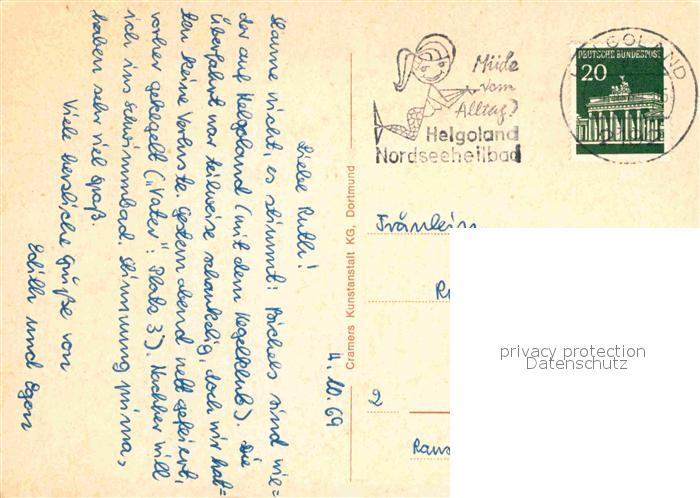 4.10.69
Liebe Ruth!
Staune nicht, es stimmt: Büchels sind wie=
der auf Helgoland (mit dem Kegelklub). Die
Überfahrt war teilweise schaukelig, doch wir hat=
ten keine Verluste. Gestern abend nett gefeiert,
vorher gekegelt („Vater": Platz 3). Nachher will
ich ins Schwimmbad. Stimmung prima,
haben sehr viel Spaß.
Viele herzliche Grüße von
Edith und Egon
Cramers Kunstanstalt KG, Dortmund
Müde
vom
Alltag?
Helgoland
Nordseeheilbad
HELGOLAND
DEUTSCHE BUNDESPOST
20
Fräulein
2
privacy protection
Datenschutz